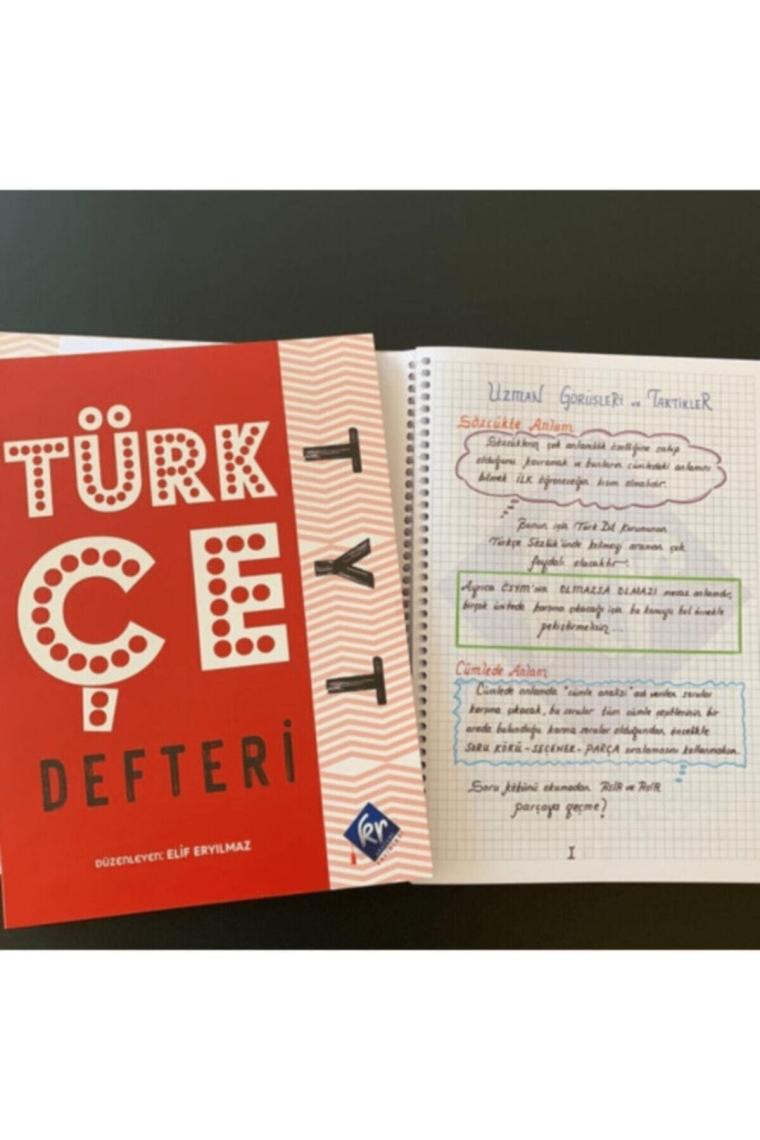 TÜRK
ÇE
DEFTERİ
DÜZENLEYEN: ELİF ERYILMAZ
TYT
kr
UZMAN GÖRÜŞLERİ ve TAKTİKLER
Sözcükte Anlam
Sözcüklerin çok anlamlılık özelliğine sahip
olduğunu kavramak ve bunların cümledeki anlamını
bilmek İLK öğreneceğin kısım olmalıdır.
Bunun için Türk Dil Kurumunun
Türkçe Sözlük'ünde kelimeyi aramak çok
faydalı olacaktır.
Ayrıca ÖSYM'nin OLMAZSA OLMAZI mecaz anlamdır,
birçok ünitede karşına çıkacağı için bu konuyu bol örnekle
pekiştirmelisin...
Cümlede Anlam
Cümlede anlamda "cümle analizi" adı verilen sorular
karşına çıkacak, bu sorular tüm cümle çeşitlerinin bir
arada bulunduğu karma sorular olduğundan öncelikle
SORU KÖKÜ - SEÇENEK - PARÇA sıralamasını kullanmalısın.
Soru kökünü okumadan ASLA ve ASLA
parçaya geçme!
I